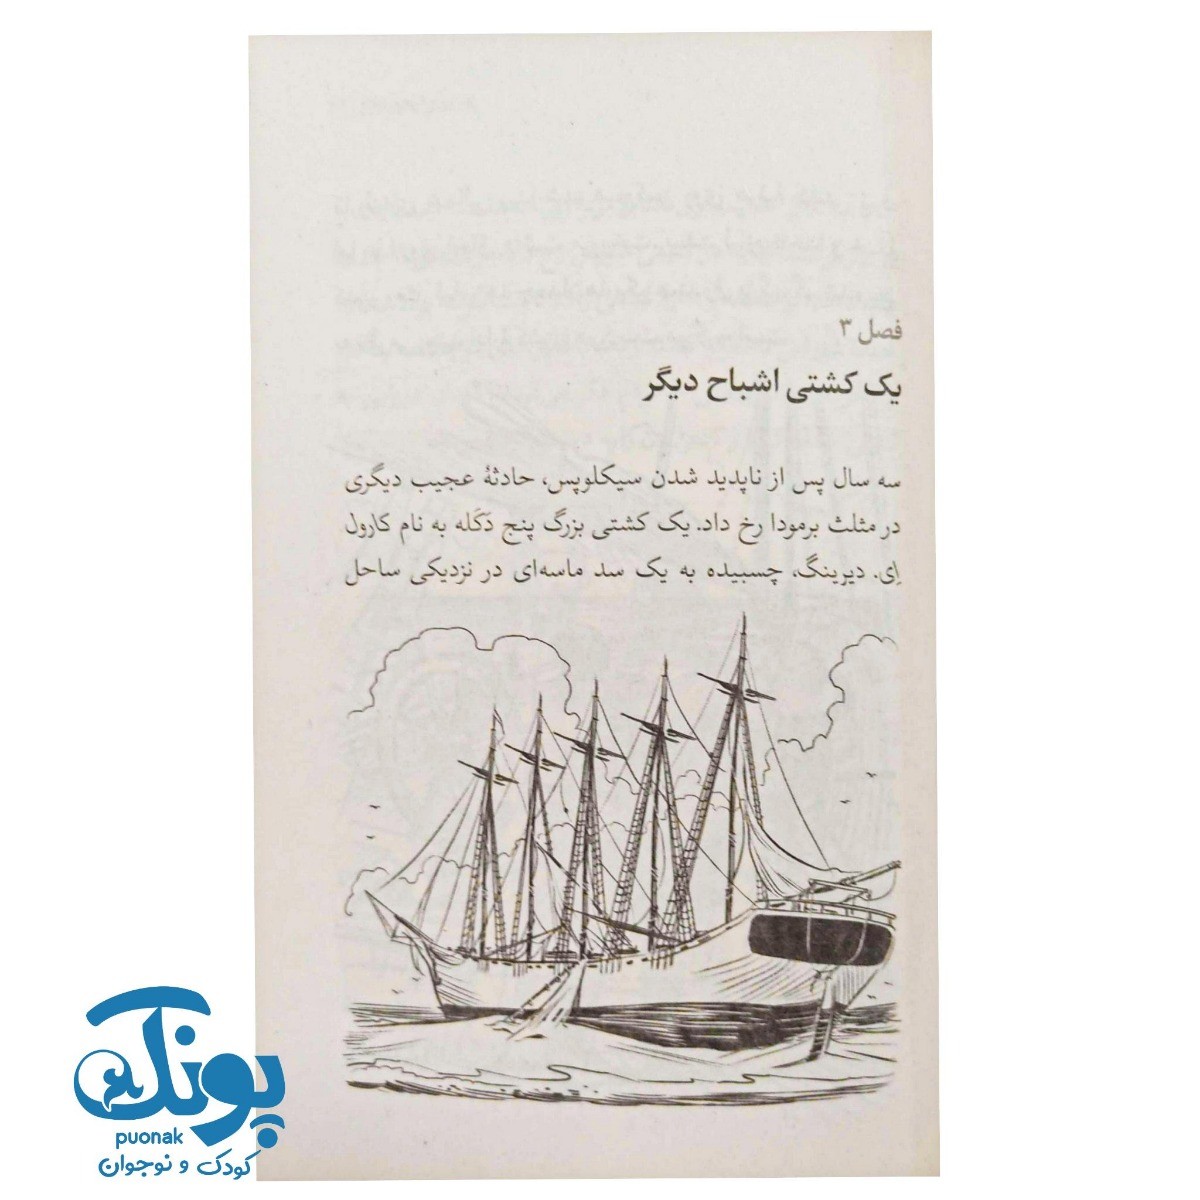 فصل ۳
یک کشتی اشباح دیگر
سه سال پس از ناپدید شدن سیکلوپس، حادثهٔ عجیب دیگری
در مثلث برمودا رخ داد. یک کشتی بزرگ پنج دَکَله به نام کارول
اِی. دیرینگ، چسبیده به یک سد ماسه‌ای در نزدیکی ساحل
پونک
puonak
کودک و نوجوان